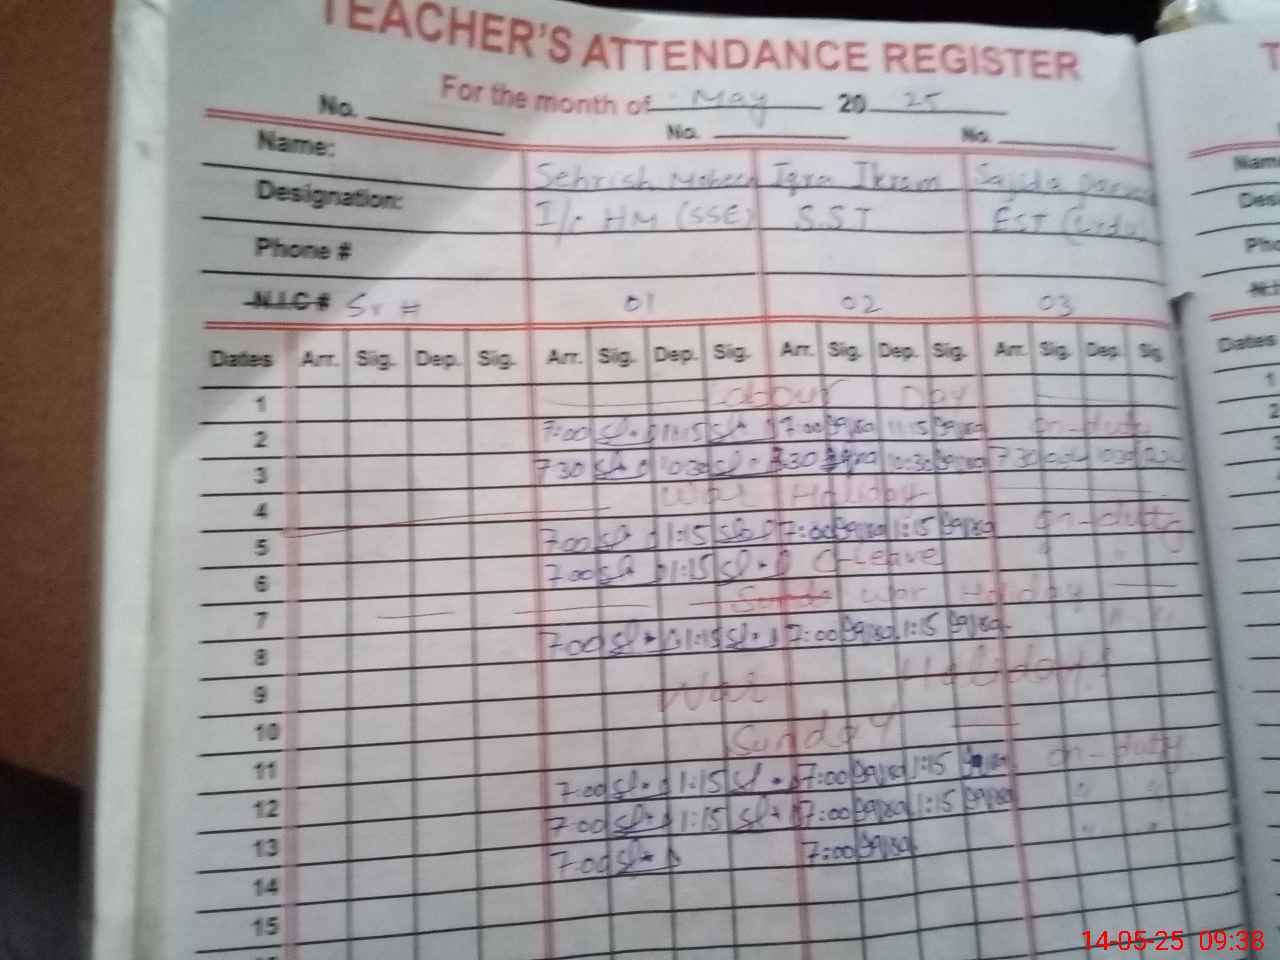 TEACHER'S ATTENDANCE REGISTER
For the month of May 2025
No. No. No.
Name: Sehrish Iqra Ikram Sajida
Designation: I/c HM (SSE) S.S.T EST (Urdu)
Phone #
N.I.C # Sr # 01 02 03
Dates Arr. Sig. Dep. Sig. Arr. Sig. Dep. Sig. Arr. Sig. Dep. Sig. Arr. Sig. Dep. Sig.
1 Labour Day
2 7:00 11:15 7:00 11:15 on-duty
3 7:30 10:30 7:30 10:30 7:30 10:30
4 War Holiday
5 7:00 1:15 7:00 1:15 on-duty
6 7:00 1:15 C-leave
7 War Holiday
8 7:00 1:15 7:00 1:15
9 War Holiday
10 Sunday
11 7:00 1:15 7:00 1:15 on-duty
12 7:00 1:15 7:00 1:15 " "
13 7:00 7:00 " "
14
15
T
Name
Desi
Pho
Dates
1
2
14-05-25 09:38